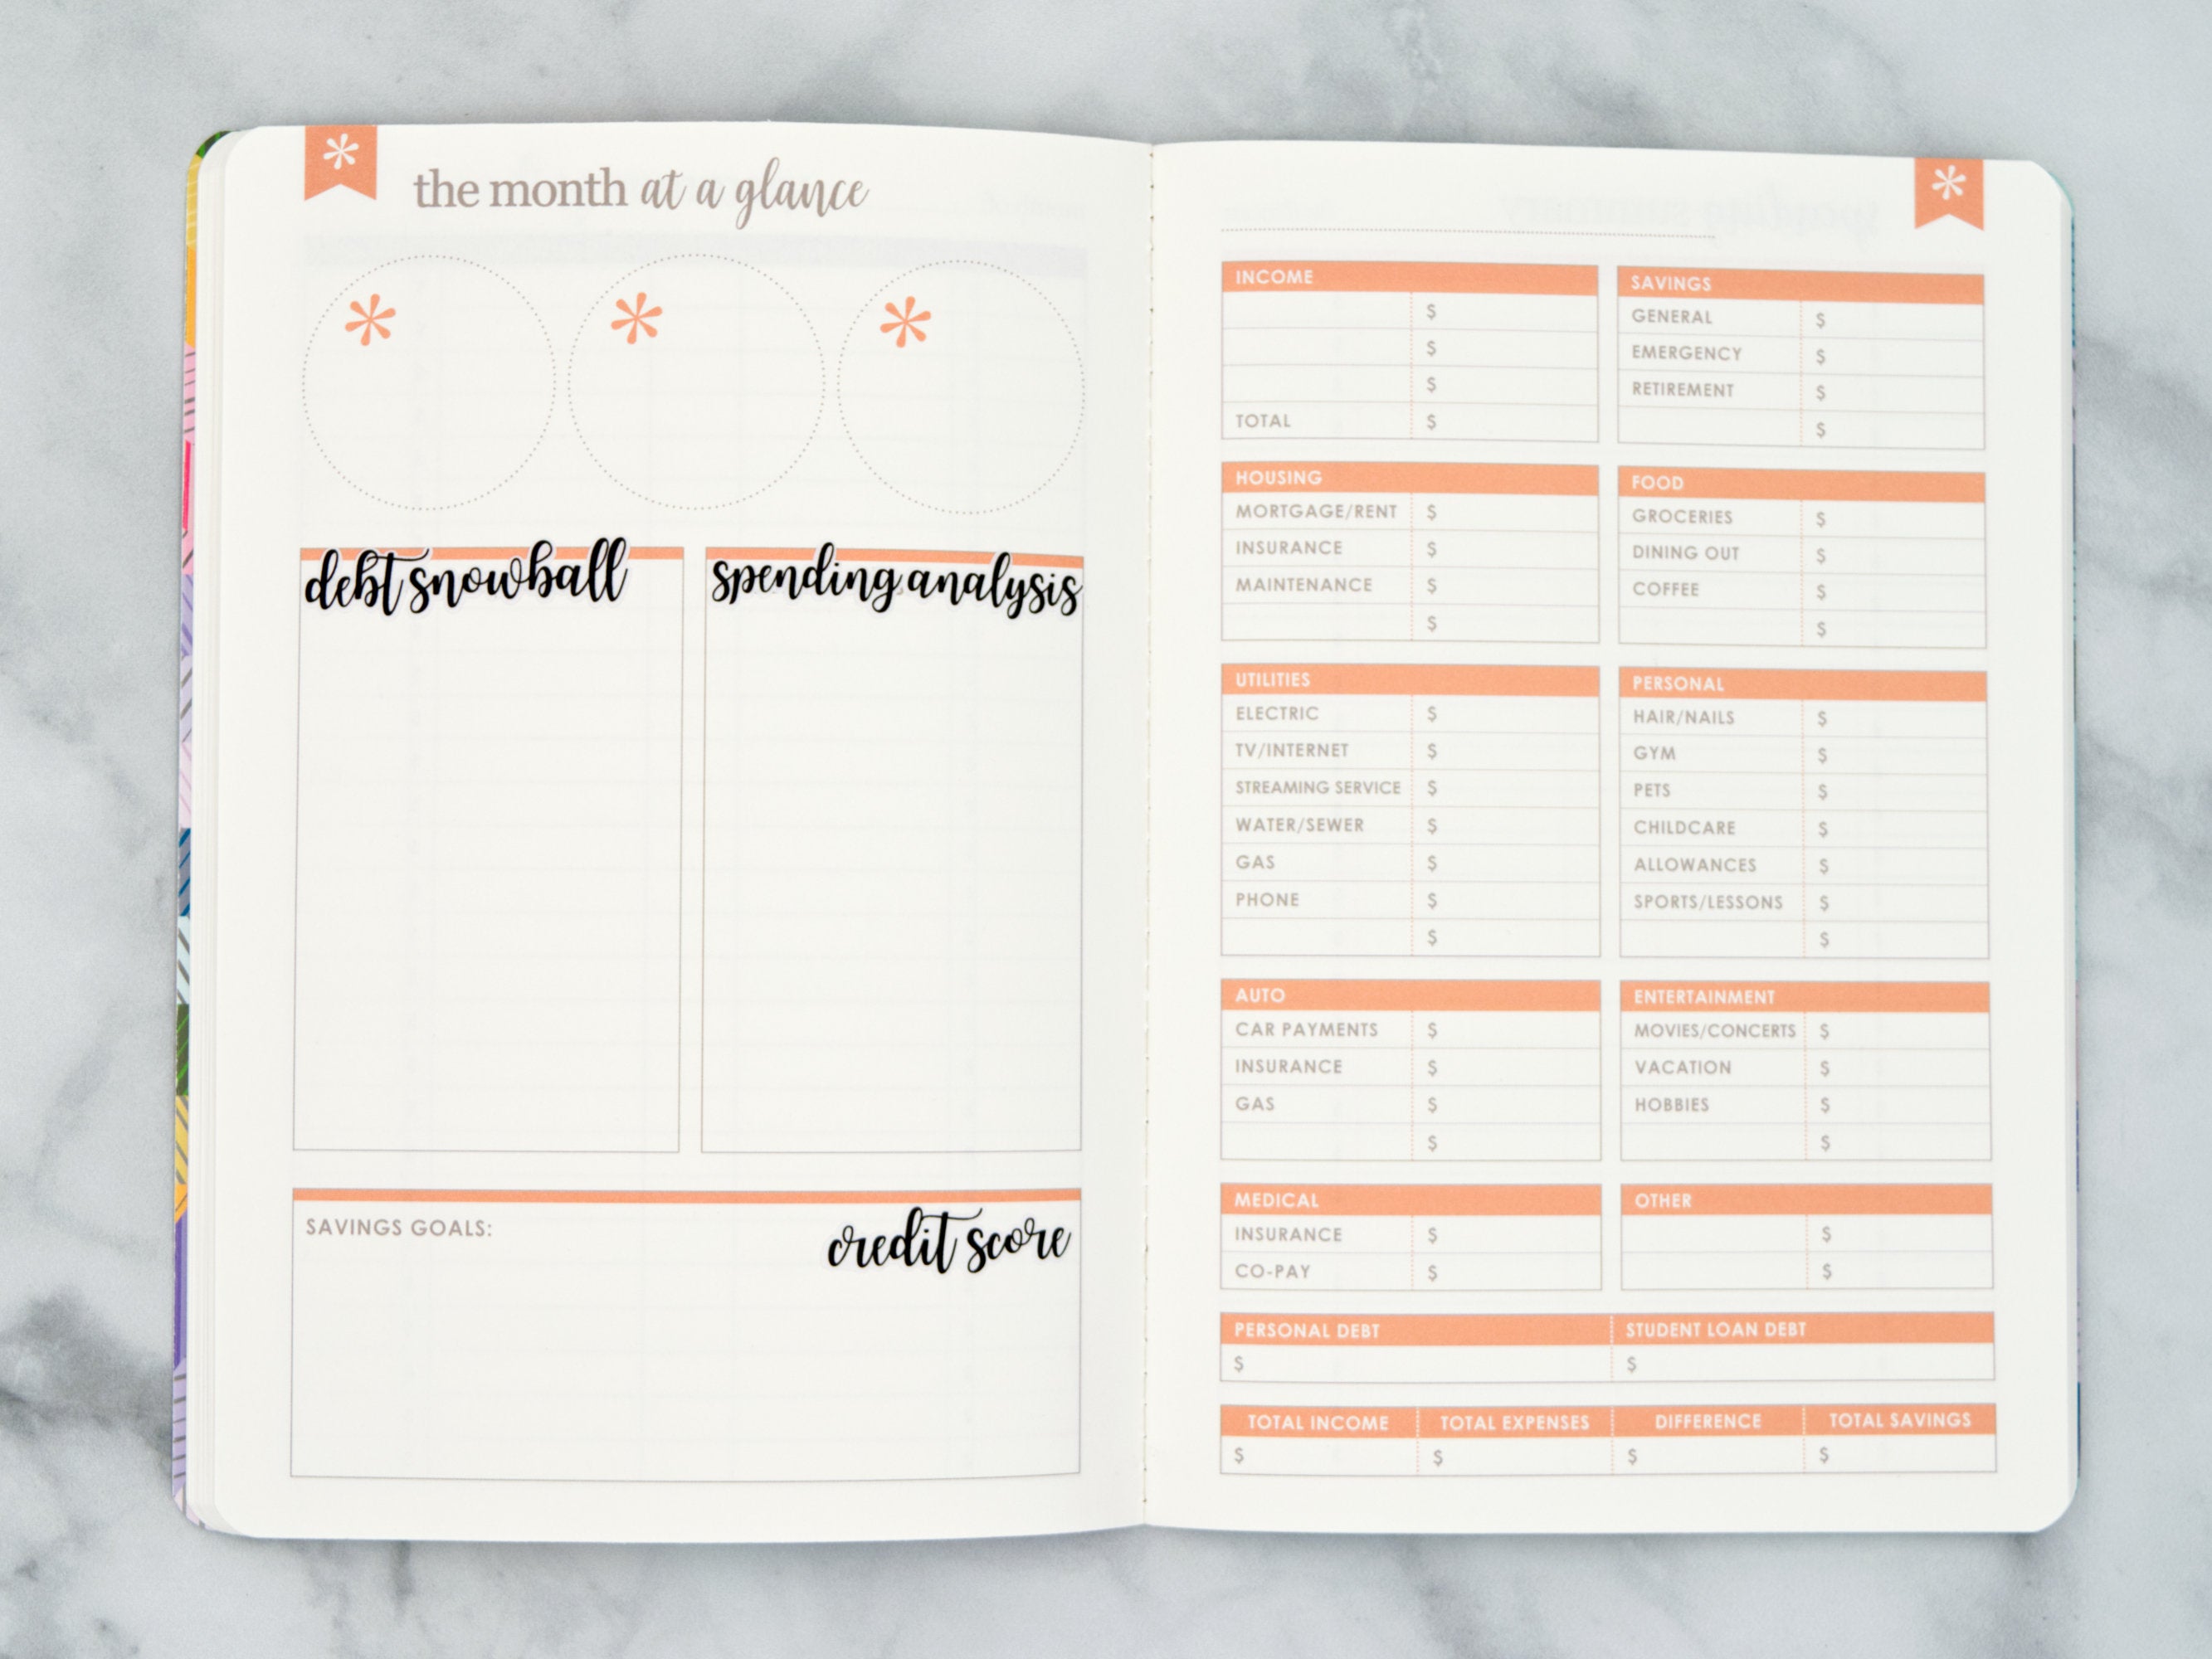 the month at a glance
debt snowball
spending analysis
SAVINGS GOALS:
credit score
INCOME
$
$
$
TOTAL $
SAVINGS
GENERAL $
EMERGENCY $
RETIREMENT $
$
HOUSING
MORTGAGE/RENT $
INSURANCE $
MAINTENANCE $
$
FOOD
GROCERIES $
DINING OUT $
COFFEE $
$
UTILITIES
ELECTRIC $
TV/INTERNET $
STREAMING SERVICE $
WATER/SEWER $
GAS $
PHONE $
$
PERSONAL
HAIR/NAILS $
GYM $
PETS $
CHILDCARE $
ALLOWANCES $
SPORTS/LESSONS $
$
AUTO
CAR PAYMENTS $
INSURANCE $
GAS $
$
ENTERTAINMENT
MOVIES/CONCERTS $
VACATION $
HOBBIES $
$
MEDICAL
INSURANCE $
CO-PAY $
OTHER
$
$
PERSONAL DEBT STUDENT LOAN DEBT
$ $
TOTAL INCOME TOTAL EXPENSES DIFFERENCE TOTAL SAVINGS
$ $ $ $